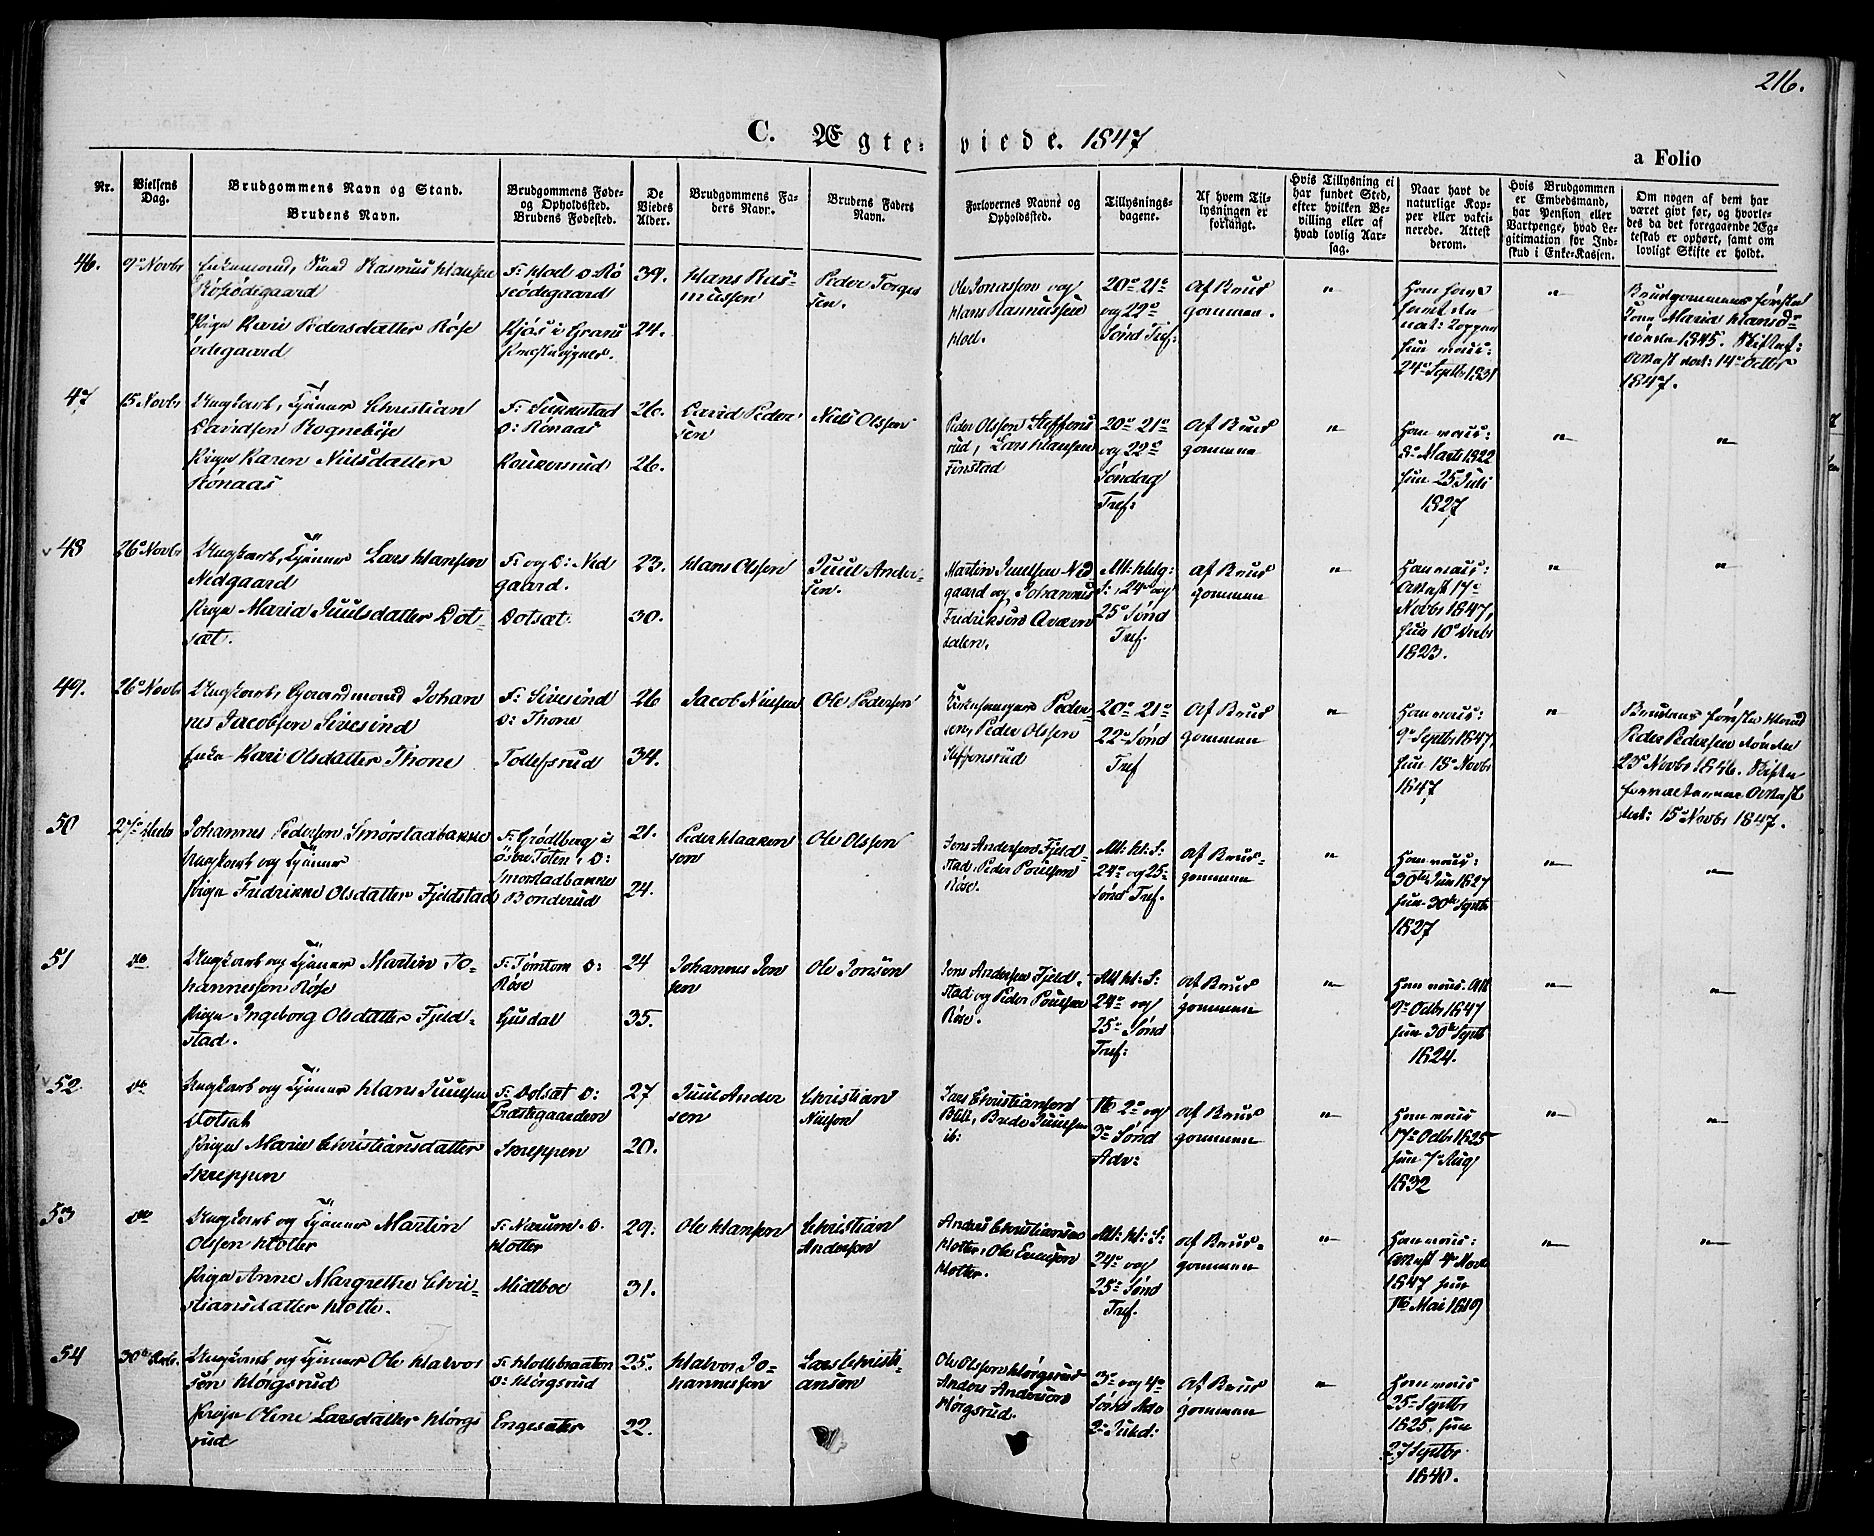 216.
C. Ægteviede. 1847
a Folio
Nr.
Vielsens Dag.
Brudgommens Navn og Stand.
Brudens Navn.
Brudgommens Føde- og Opholdssted. Brudens Fødested.
De Viedes Alder.
Brudgommens Faders Navn.
Brudens Faders Navn.
Forlovernes Navne og Opholdssted.
Tillysningsdagene.
Af hvem Tillysningen er forlangt.
Hvis Tillysning ei har fundet Sted, efter hvilken Bevilling eller af hvad lovlig Aarsag.
Naar havt de naturlige Kopper eller vaktinerede. Attest derom.
Hvis Brudgommen er Embedsmand, har Pension eller Vartpenge, hvad Legitimation for Indskud i Enke-Kassen.
Om nogen af dem har været givt før, og hvorledes da det foregaaende Ægteskab er ophørt, samt om lovligt Skifte er holdt.
46.
9de Novbr
Enkemand, Rasmus Hansen
Røseødegaard
Pige Kari Pedersdatter Røse
ødegaard
F: Hoel O: Rø
seødegaard
Kjøs i Grans
Præstegjæld.
39.
24.
Hans Ras-
mussen
Peder Torges
sen.
Ole Jonassen og
Hans Rasmussen
Hoel.
20de 21de
og 22de
Sønd Tref:
Af Brud
gommen.
"
24de Septbr 1831
"
Brudgommens første
Kone Maria Hansd:
døde 1845. Skifte
Attest dat: 14de Octbr
1847.
47
15 Novbr
Ungkarl, Tjener Christian
Davidsen Rognebye
Pige Karen Nielsdatter
Rønaas
O: Rønaas
26.
26.
David Peder
sen
Niels Olssen
Peder Olssen Steffens
rud, Lars Hansen
Finstad
20de 21de
og 22de
Søndag
Tref:
Af Brud
gommen
"
Ham vacc:
8de Marts 1822
hun 25 Juli
1827
"
"
48
26de Novbr
Ungkarl, Tjener Lars Hansen
Nedgaard
Pige Maria Juulsdatter Dot-
sæt.
F: og O: Ned
gaard.
Dotsæt
23.
30.
Hans Olssen
Juul Ander-
sen.
Martin Juulsen Ned
gaard og Johannes
Fredriksen Qværn
dalen.
All: Helg:
S:, 24de og
25de Sønd
Tref.
af Brud
gommen
"
Ham vacc:
Attest 17de
Novbr 1847,
hun 10de Decbr
1823.
"
"
49.
26de Novbr
Ungkarl, Gaardmand Johan
nes Jacobsen Sivesind
Enke Kari Olsdatter Thone
F: Sivesind
O: Thone
Tollefsrud
26
34.
Jacob Nielsen
Ole Pedersen
Kirkesanger Peder-
sen, Peder Olssen
Steffensrud
20de 21de
22de Sønd
Tref
af Brud
gommen
"
Ham vacc:
9de Septbr 1847,
hun 18de Novbr
1847
"
Brudens første Mand
Peder Pedersen døde
23de Novbr 1846. Skifte
forvalterens Attest
dat: 15de Novbr 1847.
50
27de
Johannes Pedersen Smørstadbakke
Ungkarl og Tjener
Pige Fredrikke Olsdatter Fjeldstad
F: Grødlberg i
østre Toten, O:
Smørstadbakke
Bonderud
21.
24.
Peder Haaken
sen
Ole Olssen
Jens Andersen Fjeld-
stad Peder Poulsen
Røse.
All: H: S:
24de og 25de
Sønd Tref.
af Brud-
gommen
"
Ham vacc:
30te Jun 1827
hun 30te Septbr
1827
"
"
51
do
Ungkarl og Tjener Martin Jo-
hannessen Røse
Pige Ingeborg Olsdatter Fjeld-
stad.
F: Tømtom O:
Røse
Gusdal
24
35.
Johannes Jon
sen
Ole Jonsen
Jens Andersen Fjeld-
stad og Peder Poulsen
Røse.
All H: S:
24de og
25de Sønd
Tref:
af Brud
gommen
"
Ham vacc. Att
9de Octbr 1847
hun 30te Septbr
1824.
"
"
52
do
Ungkarl og Tjener Hans Juulsen
Dotsæt
Pige Marie Christiansdatter
Skreppen
F: Dotsæt O:
Præstegaarden
Skreppen
27
20.
Juul Ander
sen
Christian
Nielsen
Lars Christiansen
Blili, Brede Juulsen
ib:
16 2de og
3de Sønd
Adv:
af Brud
gommen
"
Ham vacc
17de Octbr 1825
hun 7de Aug
1832
"
"
53
do
Ungkarl og Tjener Martin
Olssen Kloller
Pige Anne Margrethe Chri-
stiansdatter Klotte.
F: Nærum O:
Midlboe
29.
31.
Ole Hansen
Christian
Andersen
Anders Christiansen
24de og
25de Sønd
Tref.
af Brud-
gommen
"
Ham vacc:
Attest 4de Nov
1847 hun
16 Mai 1819
"
"
54
30te
Ungkarl og Tjener Ole Halvor
sen Hørgsrud
Pige Olene Larsdatter Hørgs
rud
F: Hollebraaten
O: Hørgsrud
Engesæter
25.
22.
Halvor Jo-
hannessen
Lars Christi-
ansen
Ole Olssen Hørgsrud
Anders Andersen
Hørgsrud.
3de og 4de
Sønd Adv
2 Juled:
af Brud
gommen
"
Ham vacc
25de Septbr
1825, hun
27 Septbr
1840.